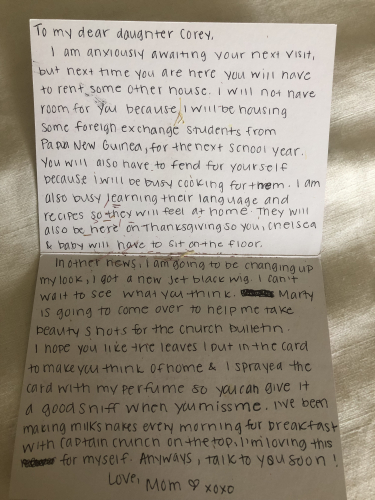 To my dear daughter Corey,
I am anxiously awaiting your next visit,
but next time you are here you will have
to rent some other house. I will not have
room for you because I will be housing
some foreign exchange students from
Papua New Guinea, for the next school year.
You will also have to fend for yourself
because i will be busy cooking for them. I am
also busy learning their language and
recipes so they will feel at home. They will
also be here on Thanksgiving so you, Chelsea
& baby will have to sit on the floor.
In other news, I am going to be changing up
my look, I got a new jet black wig. I can't
wait to see what you think. Marty
is going to come over to help me take
beauty shots for the church bulletin.
I hope you like the leaves I put in the card
to make you think of home & I sprayed the
card with my perfume so you can give it
a good sniff when you miss me. I've been
making milkshakes every morning for breakfast
with captain crunch on the top, I'm loving this
for myself. Anyways, talk to you soon!
Love, Mom ♡ xoxo